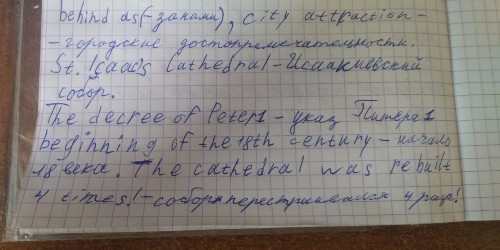 behind as(-занами), city attraction-
-городские достопримечательности.
St. Isaads Cathedral-Исаакиевский
собор.
The decree of Peter1-указ Питера1
beginning of the 18th century-начало
18 века. The cathedral was rebuilt
4 times!-собор перестраивался 4 раза!